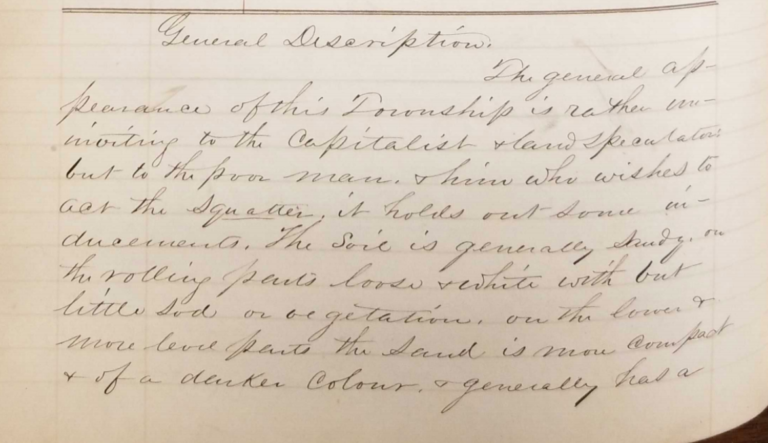 General Description.
The general ap-
pearance of this Township is rather un-
inviting to the Capitalist & land Speculators
but to the poor man. & him who wishes to
act the Squatter. it holds out some in-
ducements. The Soil is generally Sandy. on
the rolling parts loose & white with but
little Sod or vegetation. on the lower &
more level parts the Sand is more compact
& of a darker Colour. & generally has a